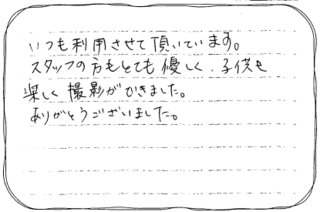 いつも利用させて頂いています。
スタッフの方もとても優しく、子供も
楽しく撮影ができました。
ありがとうございました。